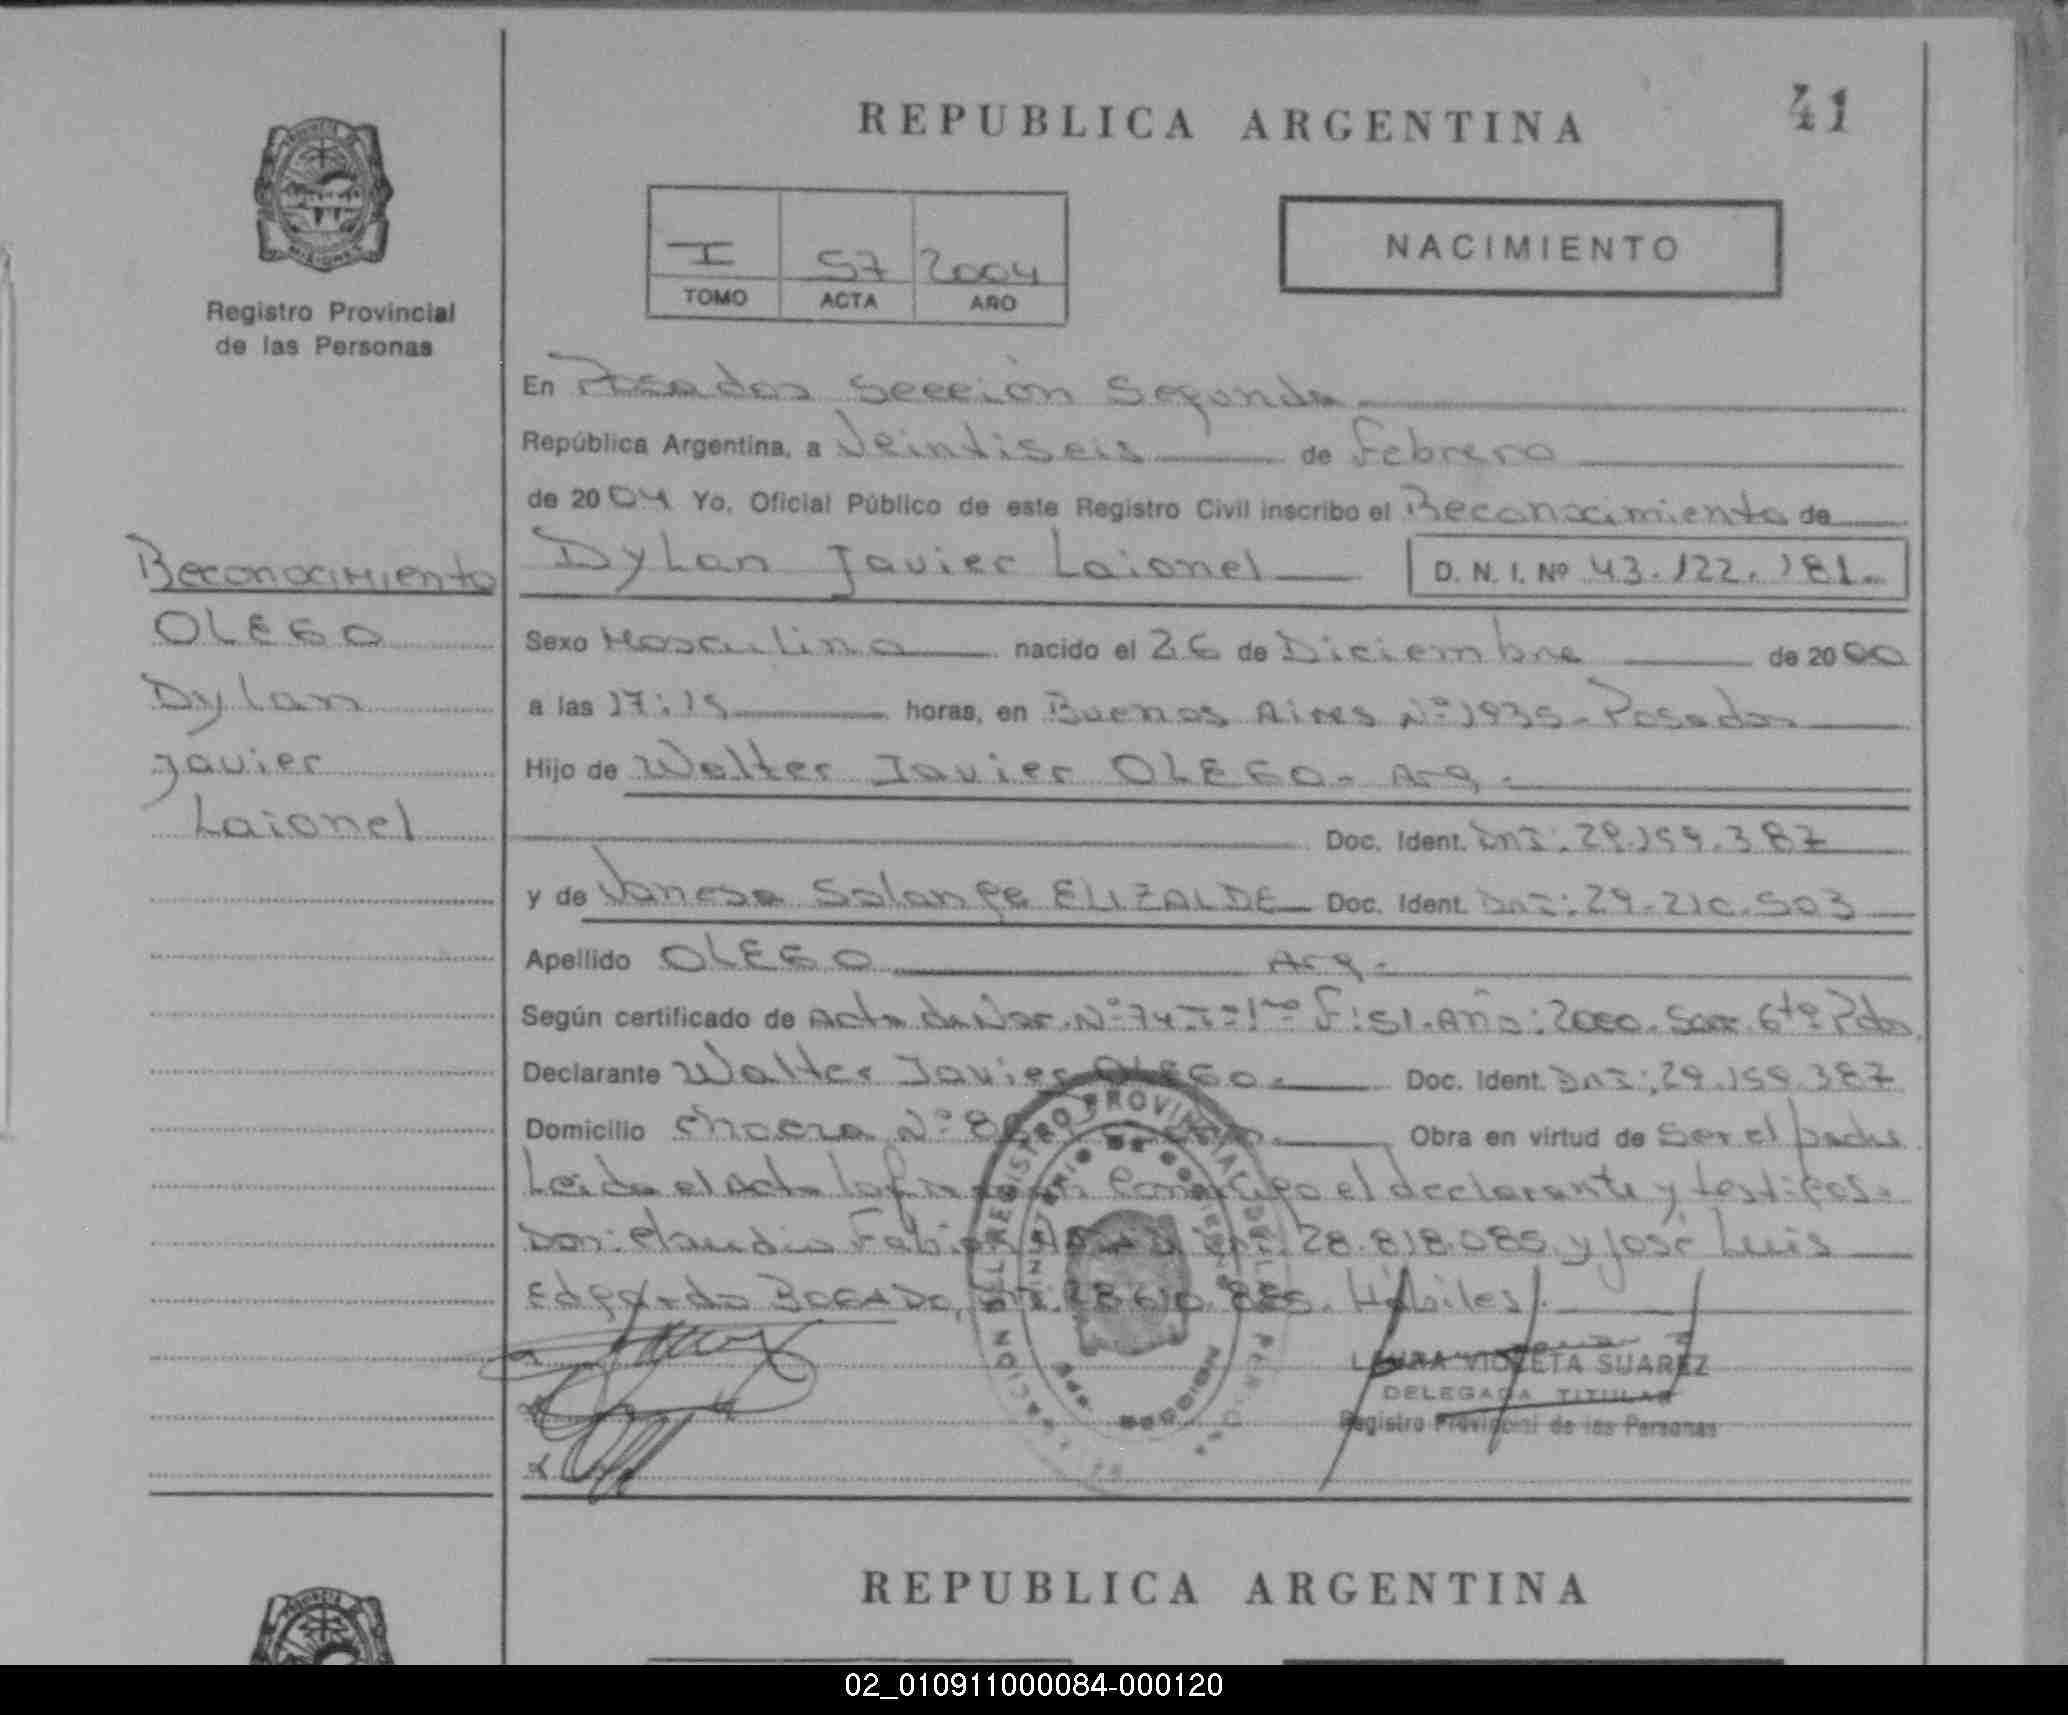 REPUBLICA ARGENTINA
41
I 57 2004
TOMO ACTA AÑO
NACIMIENTO
Registro Provincial
de las Personas
En Posadas Sección Segunda
República Argentina, a Veintiseis de Febrero
de 2004 Yo, Oficial Público de este Registro Civil inscribo el Reconocimiento de
Dylan Javier Laionel D. N. I. Nº 43.122.181.
Reconocimiento
OLEGO
Dylan
Javier
Laionel
Sexo Masculino nacido el 26 de Diciembre de 2000
a las 17:15 horas, en Buenos Aires Nº 1935 - Posadas
Hijo de Walter Javier OLEGO - Arg.
Doc. Ident. DNI: 29.159.387
y de Vanesa Solange ELIZALDE Doc. Ident. DNI: 29.210.503
Apellido OLEGO Arg.
Según certificado de Acta de Nac. Nº 74 Tº 1ro F: 51. Año: 2000. Secc. 6ta Pdas
Declarante Walter Javier OLEGO Doc. Ident. DNI: 29.159.387
Domicilio Chacra Nº Obra en virtud de Ser el padre
Leida el Acta la firman Conmigo el declarante y testigos.
Don: Claudio Fabian 28.818.085 y José Luis
Edgardo BOGADO, 28.610.885. Hábiles.
LAURA VIOLETA SUAREZ
DELEGADA TITULAR
Registro Provincial de las Personas
REPUBLICA ARGENTINA
02_010911000084-000120